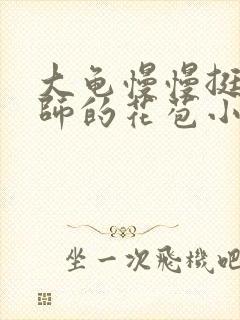 大龟慢慢挺
师的花苞小
坐一次飛機吧